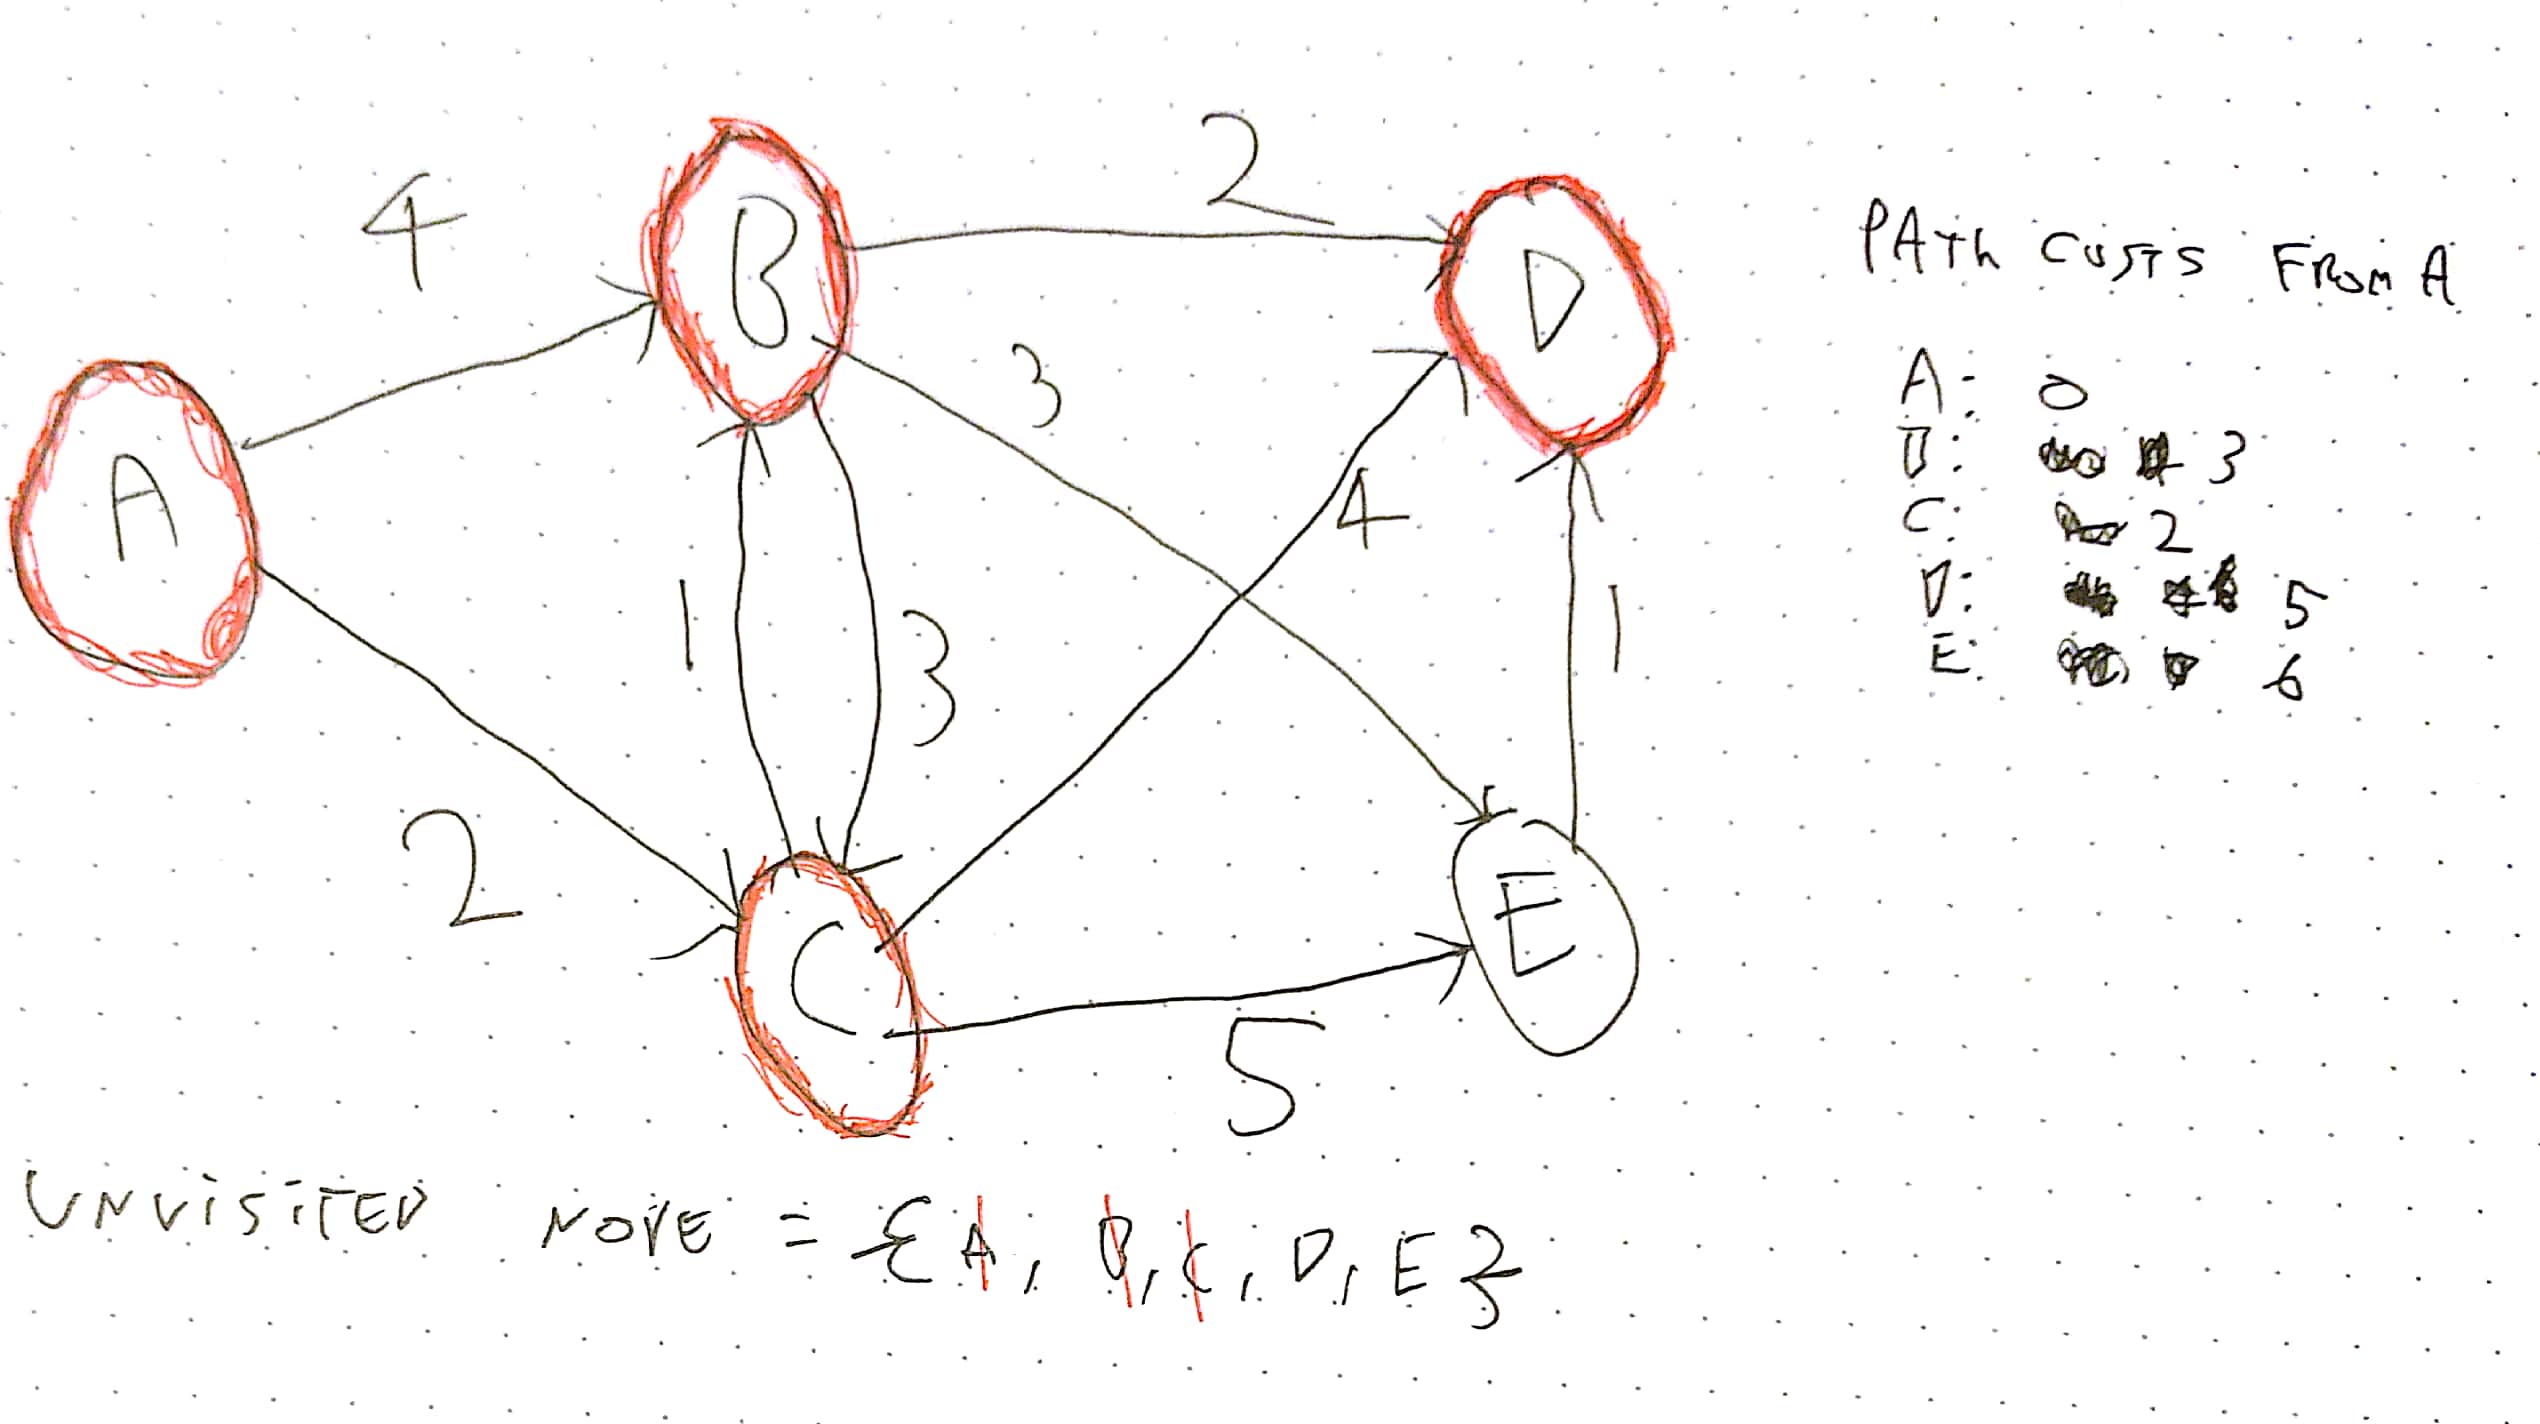 4
2
B
D
3
A
1
3
4
1
2
C
E
5
PATh COSTS FROM A
A: 0
B: 3
C: 2
D: 5
E: 6
UNVISITED NODE = {A, B, C, D, E}